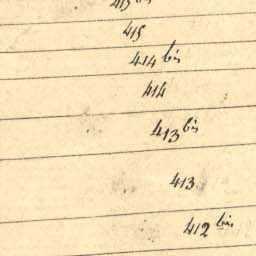 415 bis
415
414 bis
414
413 bis
413
412 bis